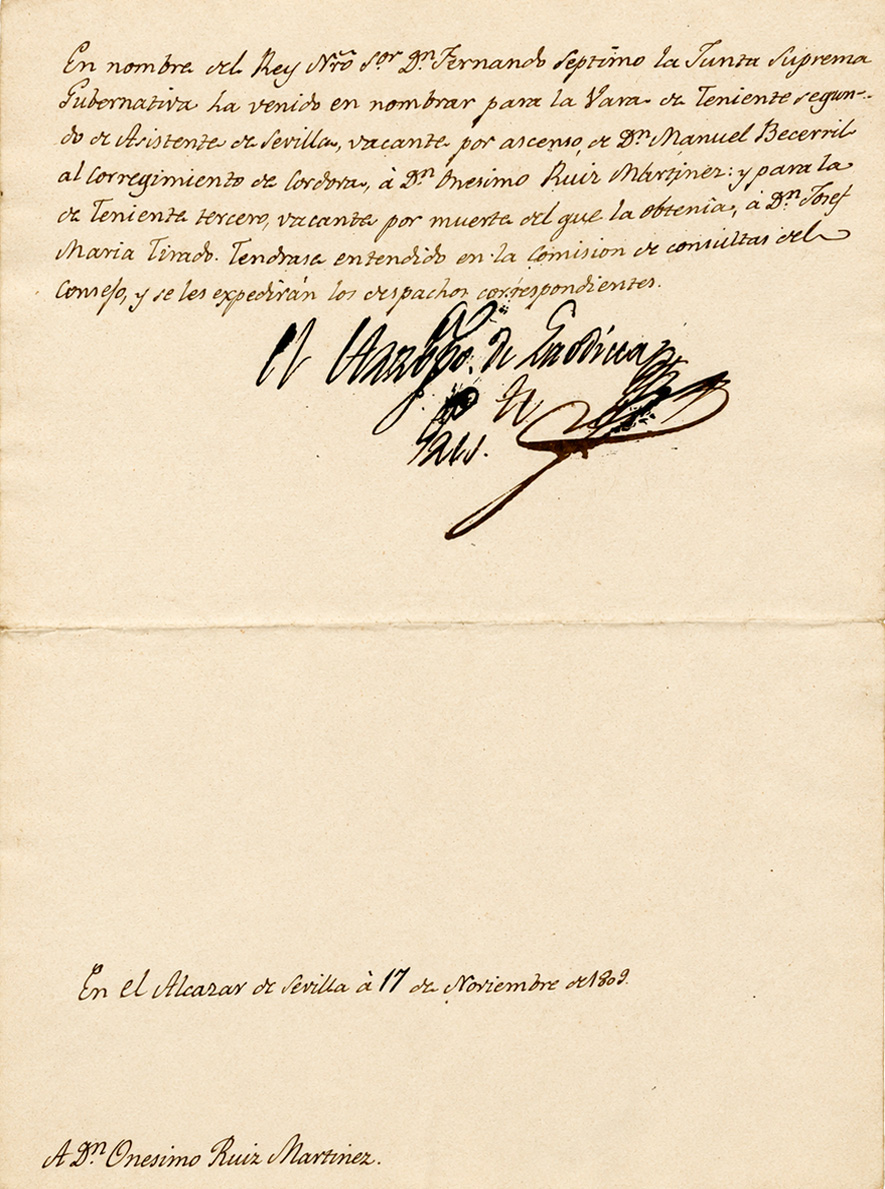 En nombre del Rey Nrõ Sor Dn Fernando Septimo la Junta Suprema
Gubernativa ha venido en nombrar para la Vara de Teniente segun-
do de Asistente de Sevilla, vacante por ascenso, de Dn Manuel Becerril
al corregimiento de Cordova, à Dn Onesimo Ruiz Martinez: y para la
de Teniente tercero, vacante por muerte del que la obtenia, à Dn Josef
Maria Tirado. Tendrase entendido en la Comision de consultas del
Consejo, y se les expedirán los despachos correspondientes.
el Arzbpo. de Laodicea
Pres.
En el Alcazar de Sevilla à 17 de Noviembre de 1809.
A Dn Onesimo Ruiz Martinez.